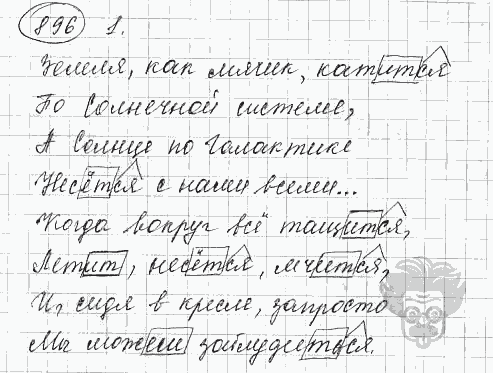 896 1.
Земля, как мячик, катится
По Солнечной системе,
А Солнце по Галактике
Несётся с нами всеми...
Когда вокруг всё тащится,
Летит, несётся, мчится,
И, сидя в кресле, запросто
Мы можем заблудиться.